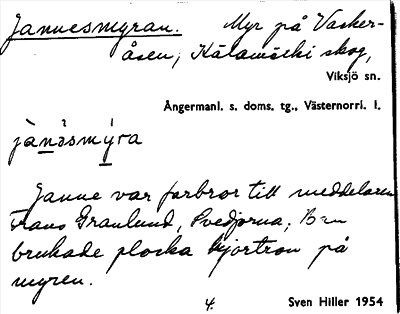 Jannesmyran. Myr på Vasker-
åsen, Kälamölki skog,
Viksjö sn.
Ångermanl. s. doms. tg., Västernorrl. l.
jànə̀smýra
Janne var farbror till meddelaren
Frans Granlund, Svedjorna; Bru
brukade plocka hjortron på
myren.
4. Sven Hiller 1954